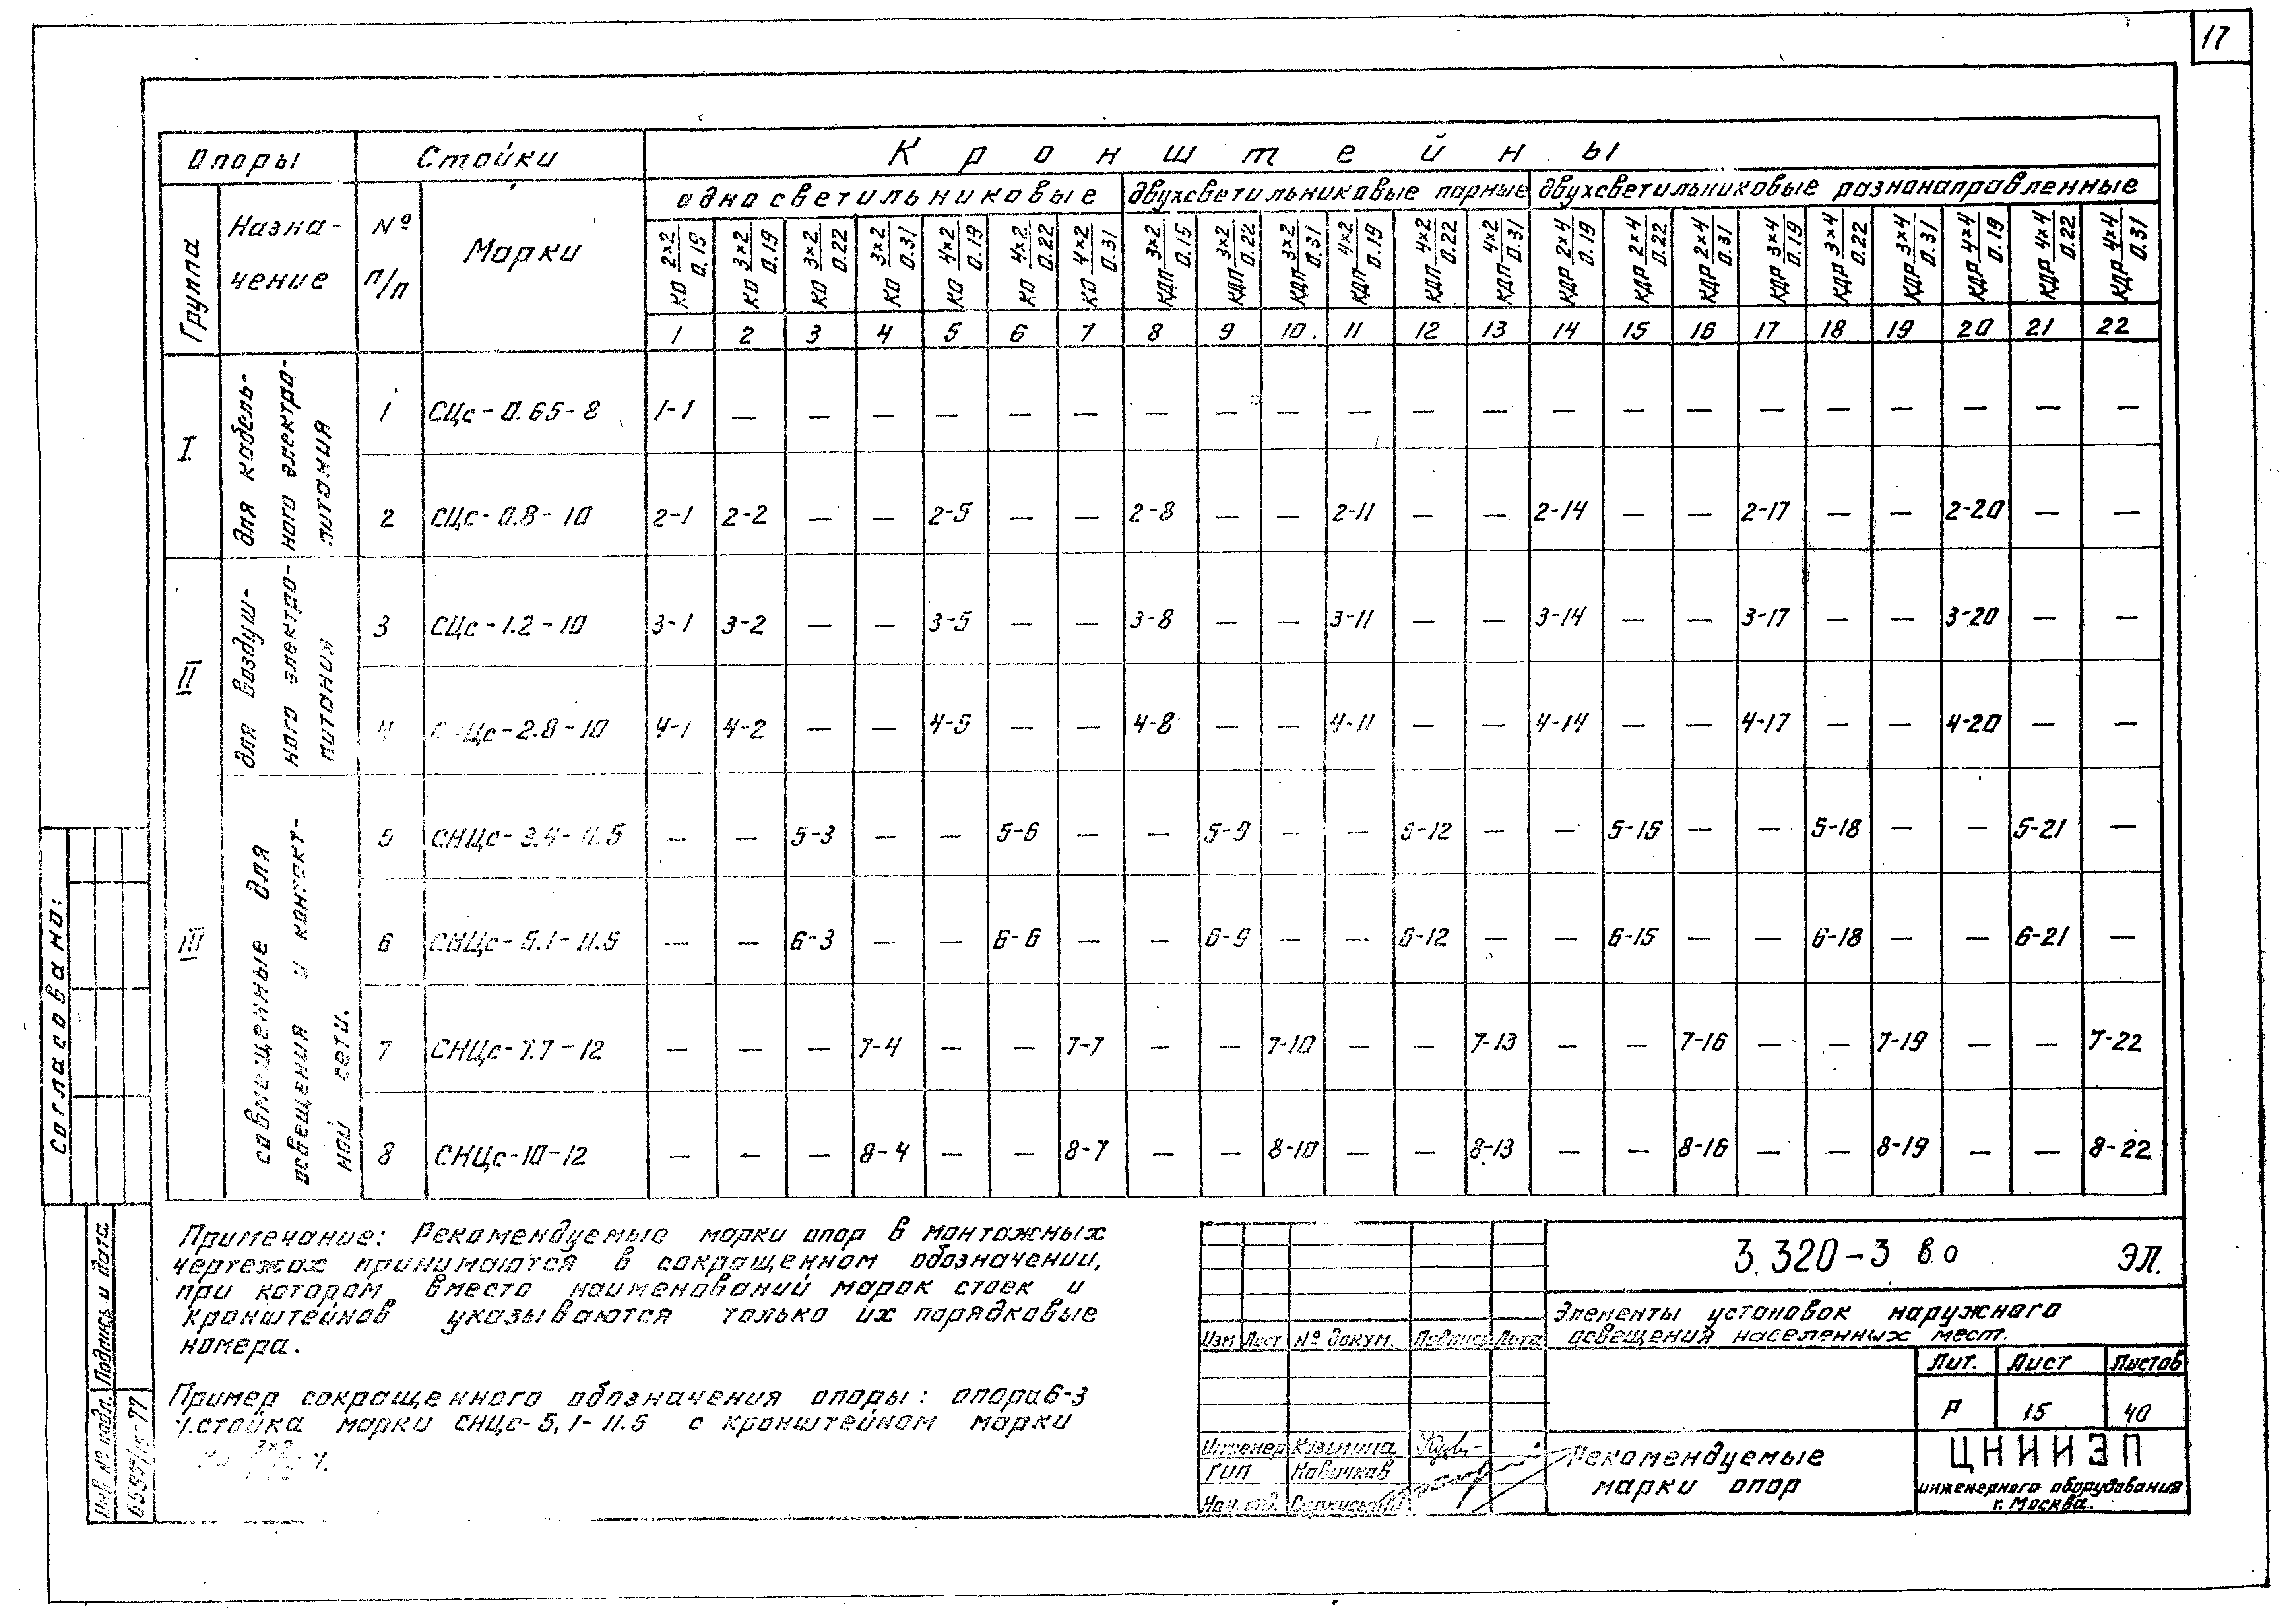 17
Опоры Стойки Кронштейны
Группа Назна- № Марки односветильниковые двухсветильниковые парные двухсветильниковые разнонаправленные
чение п/п
КО 2×2/0.19 КО 3×2/0.19 КО 3×2/0.22 КО 3×2/0.31 КО 4×2/0.19 КО 4×2/0.22 КО 4×2/0.31 КДП 3×2/0.15 КДП 3×2/0.22 КДП 3×2/0.31 КДП 4×2/0.19 КДП 4×2/0.22 КДП 4×2/0.31 КДР 2×4/0.19 КДР 2×4/0.22 КДР 2×4/0.31 КДР 3×4/0.19 КДР 3×4/0.22 КДР 3×4/0.31 КДР 4×4/0.19 КДР 4×4/0.22 КДР 4×4/0.31
1 2 3 4 5 6 7 8 9 10. 11 12 13 14 15 16 17 18 19 20 21 22
I
для кабель-
ного электро-
питания
1 СЦс-0.65-8 1-1 — — — — — — — — — — — — — — — — — — — — —
2 СЦс-0.8-10 2-1 2-2 — — 2-5 — — 2-8 — — 2-11 — — 2-14 — — 2-17 — — 2-20 — —
II
для воздуш-
ного электро-
питания
3 СЦс-1.2-10 3-1 3-2 — — 3-5 — — 3-8 — — 3-11 — — 3-14 — — 3-17 — — 3-20 — —
4 Цс-2.8-10 4-1 4-2 — — 4-5 — — 4-8 — — 4-11 — — 4-14 — — 4-17 — — 4-20 — —
III
совмещенные для
освещения и контакт-
ной сети.
5 СНЦс-3.4-11.5 — — 5-3 — — 5-6 — — 5-9 — — 5-12 — — 5-15 — — 5-18 — — 5-21 —
6 СНЦс-5.1-11.5 — — 6-3 — — 6-6 — — 6-9 — — 6-12 — — 6-15 — — 6-18 — — 6-21 —
7 СНЦс-7.7-12 — — — 7-4 — — 7-7 — — 7-10 — — 7-13 — — 7-16 — — 7-19 — — 7-22
8 СНЦс-10-12 — — — 8-4 — — 8-7 — — 8-10 — — 8-13 — — 8-16 — — 8-19 — — 8-22
Примечание: Рекомендуемые марки опор в монтажных
чертежах принимаются в сокращенном обозначении,
при котором вместо наименований марок стоек и
кронштейнов указываются только их порядковые
номера.
Пример сокращенного обозначения опоры: опора 6-3
стойка марки СНЦс-5,1-11.5 с кронштейном марки
3×2
Согласовано:
Инв. № подл. Подпись и дата
Изм Лист № докум. Подпись Дата
Инженер
ГИП Новичков
Нач. отд.
3.320-3 в.0 ЭЛ.
Элементы установок наружного
освещения населенных мест.
Лит. Лист Листов
Р 15 40
Рекомендуемые
марки опор
ЦНИИЭП
инженерного оборудования
г. Москва.